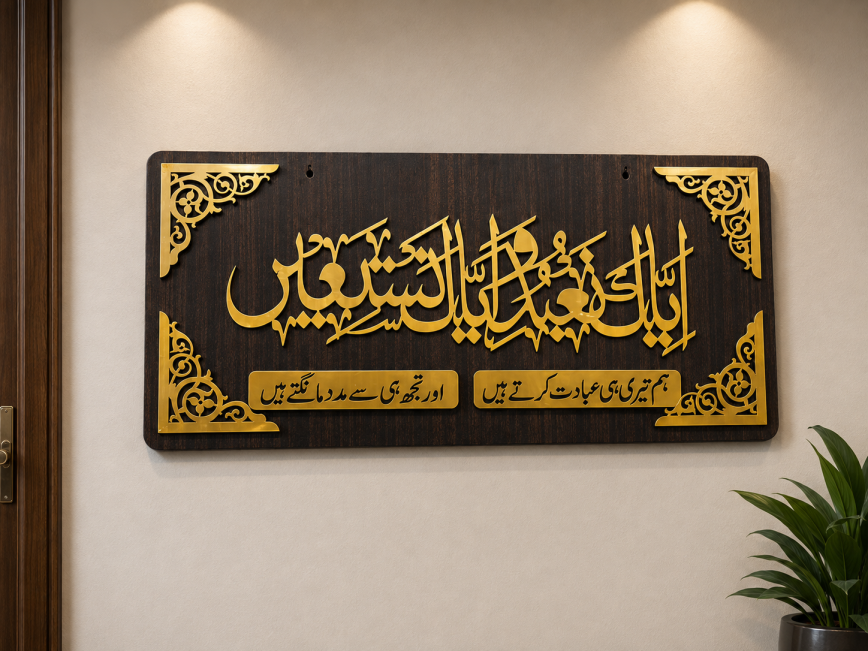 إياك نعبد وإياك نستعين
ہم تیری ہی عبادت کرتے ہیں
اور تجھ ہی سے مدد مانگتے ہیں